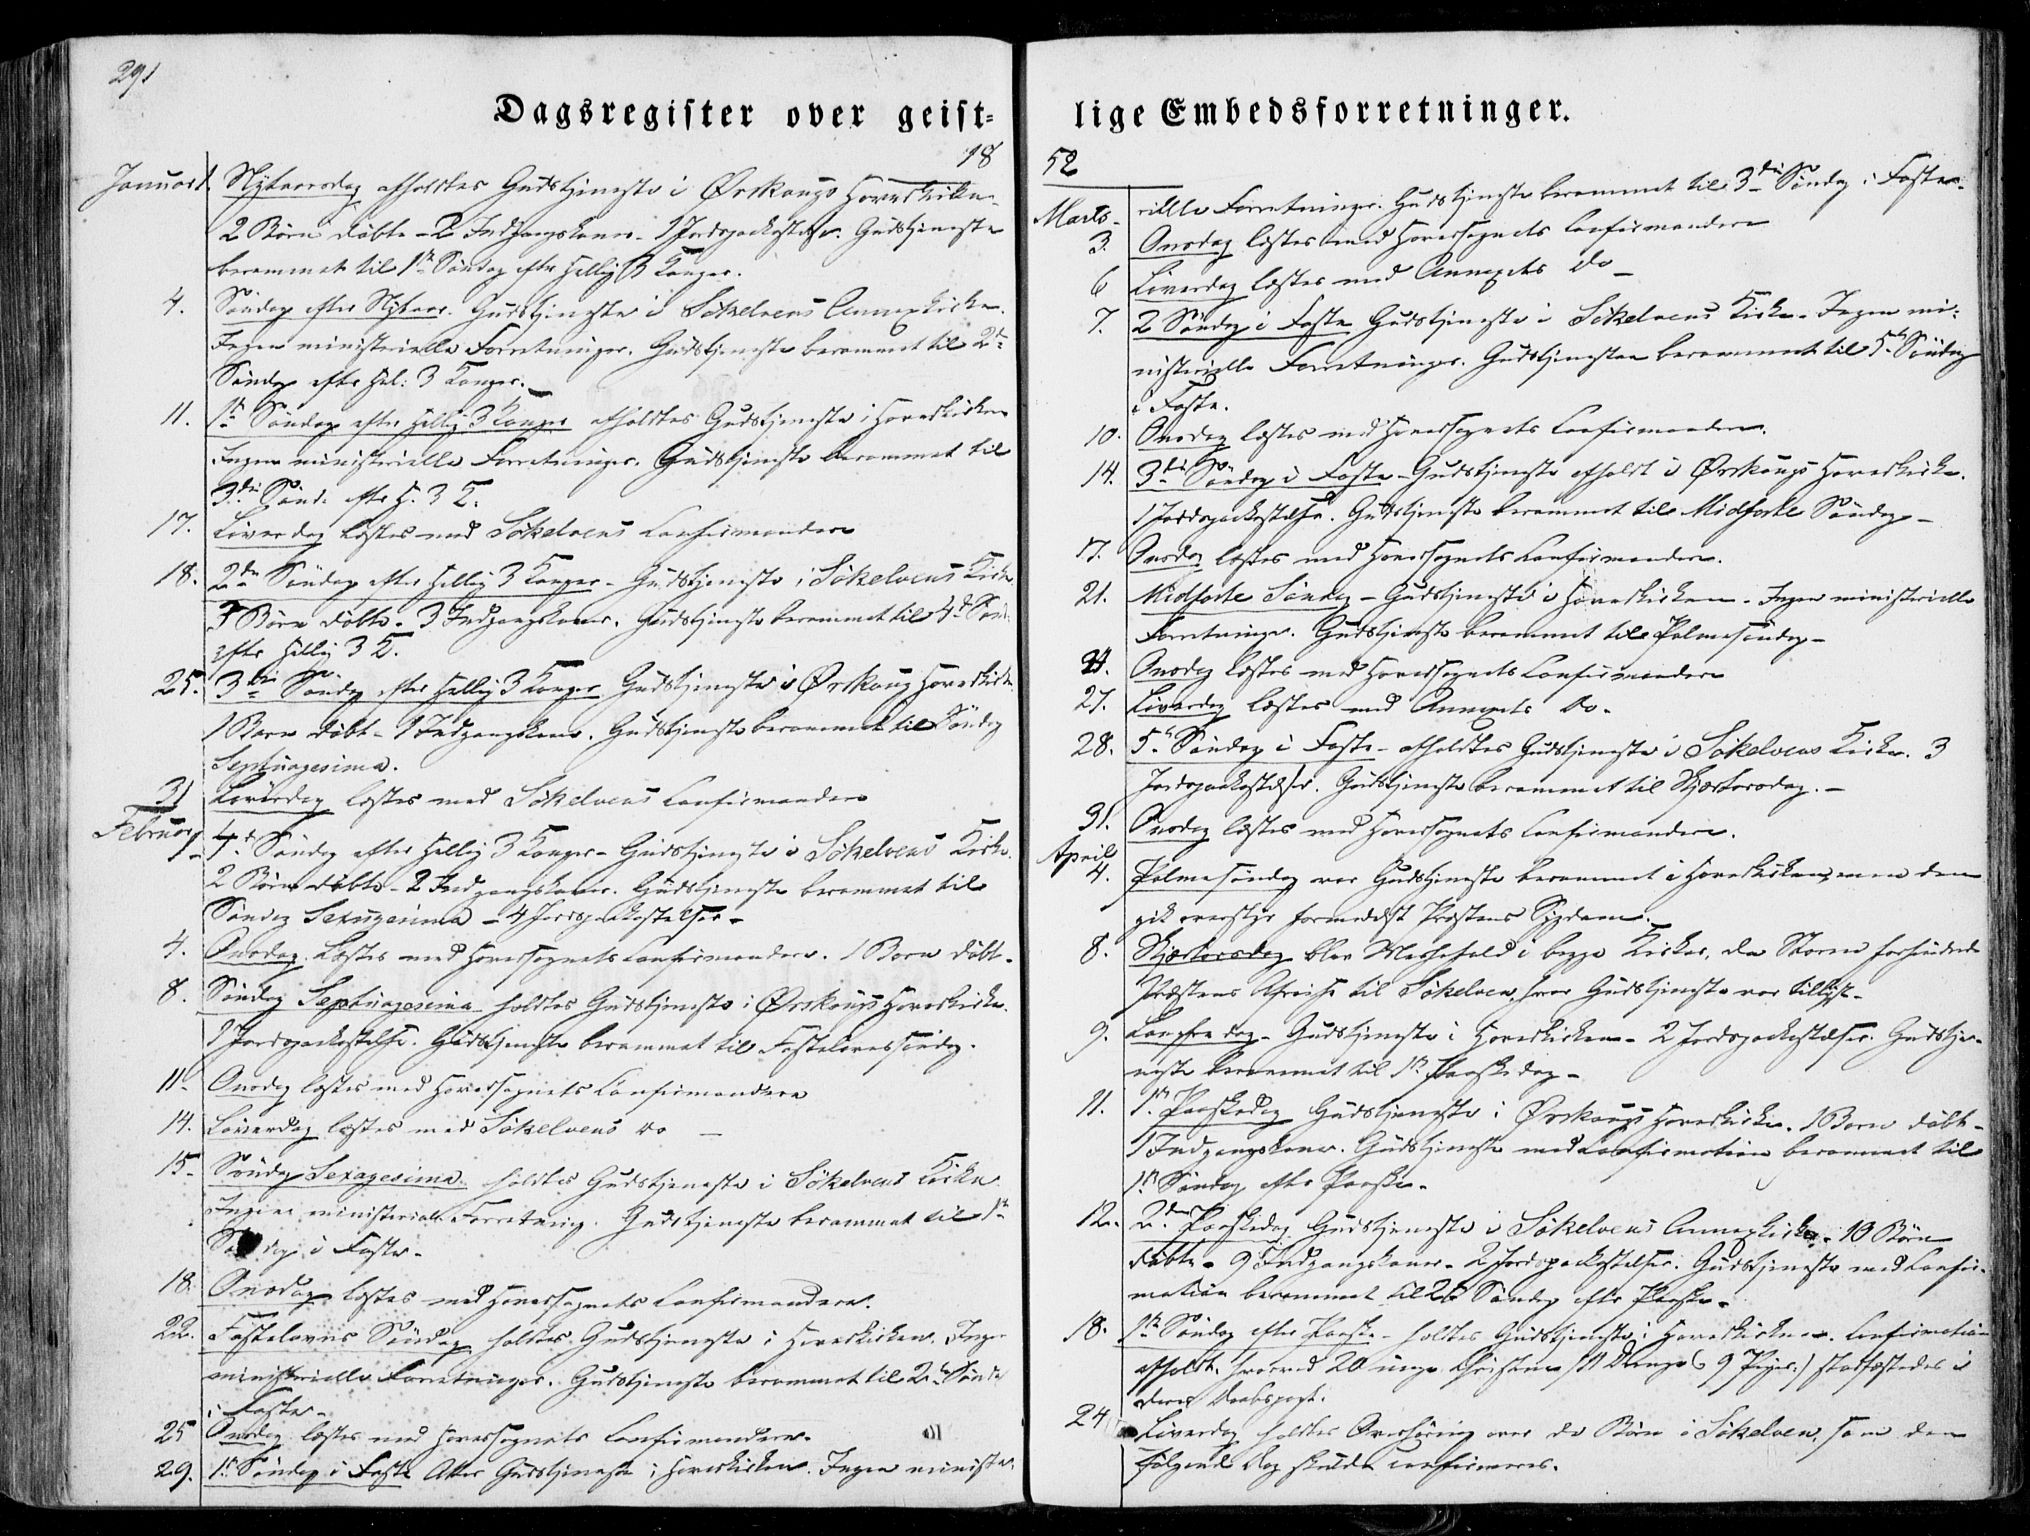 291
Dagsregister over geist-
18
Januar 1. Nytaarsdag afholdtes Gudstjeneste i Ørskougs Hovedkirke.
2 Børn døbte - 2 Indgangskoner - 1 Jordspaakastelse. Gudstjeneste
berammet til 1ste Søndag efter Hellig 3 Konger.
4. Søndag efter Nytaar. Gudstjeneste i Søkelvens Annexkirke.
Ingen ministerielle Forretninger. Gudstjeneste berammet til 2den
Søndag efter Hel: 3 Konger.
11. 1ste Søndag efter Hellig 3 Konger afholdtes Gudstjeneste i Hovedkirken
Ingen ministerielle Forretninger. Gudstjeneste berammet til
3die Sønd. efter H. 3 K.
17. Løverdag læstes med Søkelvens Confirmander
18. 2den Søndag efter Hellig 3 Konger - Gudstjeneste i Søkelvens Kirke.
3 Børn døbte - 3 Indgangskoner. Gudstjeneste berammet til 4de Sønd.
efter Hellig 3 K.
25. 3die Søndag efter Hellig 3 Konger Gudstjeneste i Ørskoug Hovedkirke.
1 Barn døbt - 1 Indgangskone. Gudstjeneste berammet til Søndag
Septuagesima.
31 Løverdag læstes med Søkelvens Confirmander
Februar
1. 4de Søndag efter Hellig 3 Konger - Gudstjeneste i Søkelvens Kirke.
2 Børn døbte - 2 Indgangskoner. Gudstjeneste berammet til
Søndag Sexagesima - 4 Jordspaakastelser -
4. Onsdag. Læstes med Hovedsognets Confirmander. 1 Barn døbt -
8. Søndag Septuagesima holdtes Gudstjeneste i Ørskougs Hovedkirke.
1 Jordspaakastelse. Gudstjeneste berammet til Fastelavnssøndag.
11 - Onsdag læstes med Hovedsognets Confirmandere
14. Løverdag læstes med Søkelvens do -
15 - Søndag Sexagesima holdtes Gudstjeneste i Søkelvens Kirke
Ingen ministeriel Forretning. Gudstjeneste berammet til 1ste
Søndag i Faste -
18. Onsdag læstes med Hovedsognets Confirmandere.
22. Fastelavns Søndag holdtes Gudstjeneste i Hovedkirken. Ingen
ministerielle Forretninger. Gudstjeneste berammet til 2den Sønd.
i Faste -
25 Onsdag læstes med Hovedsognets Confirmandere -
29. 1ste Søndag i Faste Gudstjeneste i Hovedkirken. Ingen ministe-
lige Embedsforretninger.
52
rielle Forretninger. Gudstjeneste berammet til 3die Søndag i Faste -
Marts -
3. Onsdag læstes med Hovedsognets Confirmandere
6 Løverdag læstes med Annexets do -
7. 2 Søndag i Faste Gudstjeneste i Søkelvens Kirke - Ingen mi-
nisterielle Forretninger. Gudstjenesten berammet til 5te Søndag
i Faste.
10. Onsdag læstes med Hovedsognets Confirmandere.
14. 3die Søndag i Faste - Gudstjeneste afholdt i Ørskougs Hovedkirke.
1 Jordspaakastelse. Gudstjeneste berammet til Midfaste Søndag -
17. Onsdag læstes med Hovedsognets Confirmandere.
21. Midfaste Søndag - Gudstjeneste i Hovedkirken - Ingen ministerielle
Forretninger. Gudstjeneste berammet til Palmesøndag -
24. Onsdag læstes med Hovedsognets Confirmandere
27. Løverdag læstes med Annexets do -
28. 5te Søndag i Faste - afholdtes Gudstjeneste i Søkelvens Kirke. 3
Jordspaakastelser. Gudstjeneste berammet til Skjærtorsdag. -
31. Onsdag læstes med Hovedsognets Confirmandere.
April
4. Palmesøndag var Gudstjeneste berammet i Hovedkirken, men den
gik overstyr formedelst Præstens Sygdom. -
8. Skjærtorsdag blev Messefald i begge Kirker, da Storm forhindrede
Præstens Afreise til Søkelven, hvor Gudstjeneste var tillyst -
9. Langfredag - Gudstjeneste i Hovedkirken - 2 Jordspaakastelser. Gudstje-
neste berammet til 1ste Paaskedag -
11. 1ste Paaskedag Gudstjeneste i Ørskougs Hovedkirke. 1 Barn døbt -
1 Indgangskone. Gudstjeneste med Confirmation berammet til
1ste Søndag efter Paaske -
12 - 2den Paaskedag Gudstjeneste i Søkelvens Annexkirke - 10 Børn
døbte - 9 Indgangskoner - 2 Jordspaakastelser. Gudstjeneste med Confir-
mation berammet til 2den Søndag efter Paaske -
18. 1ste Søndag efter Paaske - holdtes Gudstjeneste i Hovedkirken. Confirmation
afholdt. hvorved 20 unge Christne (11 Drenge & 9 Piger) stadfæstedes i
deres Daabspagt.
24 Løverdag holdtes Overhøring over de Børn i Søkelven, som den
følgende Dag skulde confirmeres.